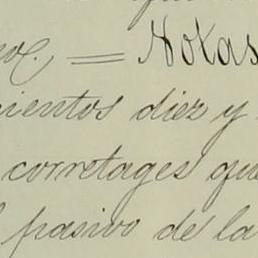 = Notas
mientos diez y
corretages que
pasivo de la